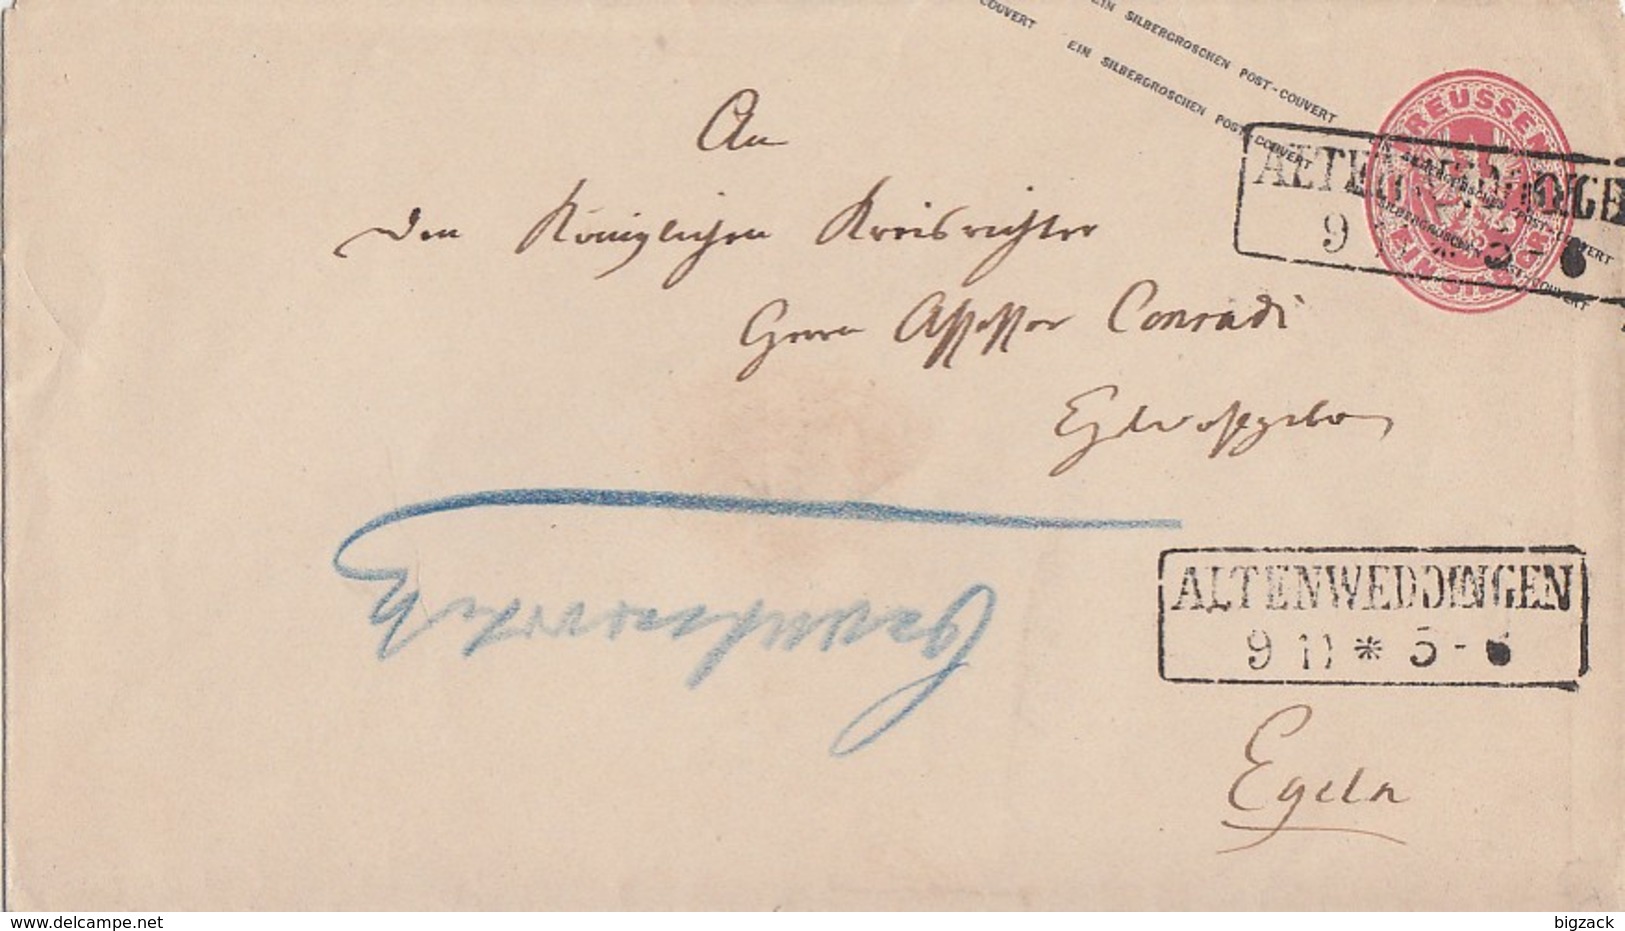 COUVERT
EIN SILBERGROSCHEN POST-COUVERT
EIN SILBERGROSCHEN POST-COUVERT
PREUSSEN
1 1
EIN SILBERGR.
ALTENWEDDINGEN
9 5-6
An
den Königlichen Kreisrichter
Herrn Assessor Conradi
Hochwohlgeboren
ALTENWEDDINGEN
9 11 * 5-6
Egeln
www.delcampe.net
bigzack